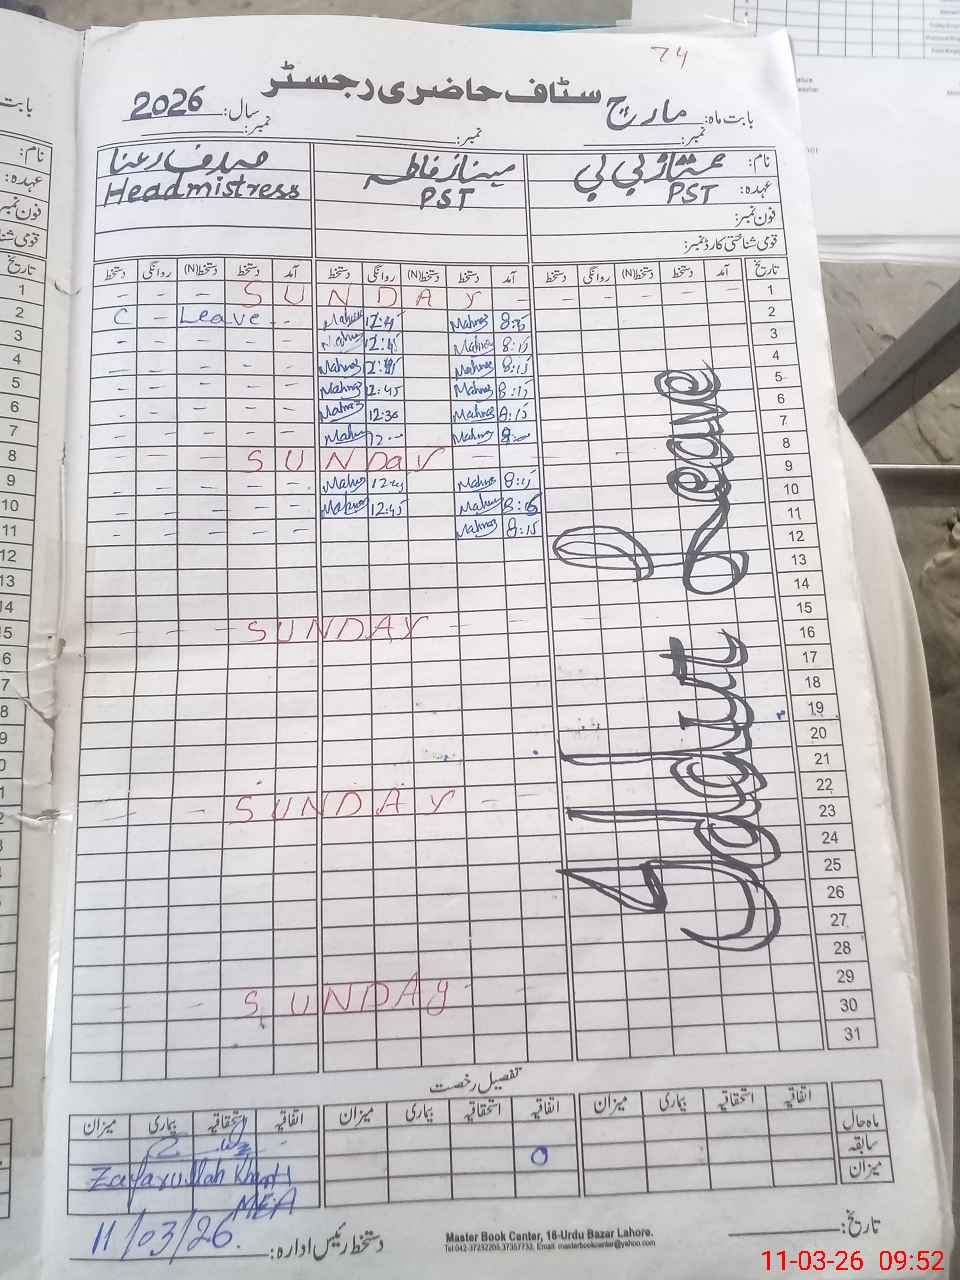 74
سٹاف حاضری رجسٹر
بابت ماہ: مارچ سال: 2026
نمبر: نمبر: نمبر:
نام: ممتاز بی بی مہناز فاطمہ صدف رعنا
عہدہ: PST PST Headmistress
فون نمبر:
قومی شناختی کارڈ نمبر:
تاریخ آمد دستخط دستخط(N) روانگی دستخط آمد دستخط دستخط(N) روانگی دستخط آمد دستخط دستخط(N) روانگی دستخط
1 SUNDAY
2 C - Leave Mahnaz 12:45 Mahnaz 8:15
3 Mahnaz 12:45 Mahnaz 8:15
4 Mahnaz 12:45 Mahnaz 8:15
5 Mahnaz 12:45 Mahnaz 8:15
6 Mahnaz 12:30 Mahnaz 8:15
7 Mahnaz 12:00 Mahnaz 8:00
8 SUNDAY
9 Mahnaz 12:45 Mahnaz 8:15
10 Mahnaz 12:45 Mahnaz 8:15
11 Mahnaz 8:15
12
13
14
15 SUNDAY
16
17
18
19
20
21
22 SUNDAY
23
24
25
26
27
28
29 SUNDAY
30
31
Leave
تفصیل رخصت
اتفاقیہ استحقاقیہ بیماری میزان اتفاقیہ استحقاقیہ بیماری میزان اتفاقیہ استحقاقیہ بیماری میزان
ماہ حال
سابقہ 0
میزان
Zafarullah Khan
MEA
11/03/26
تاریخ: دستخط رئیس ادارہ:
Master Book Center, 16-Urdu Bazar Lahore.
Tel 042-37232205, 37357732, Email: masterbookcenter@yahoo.com
11-03-26 09:52